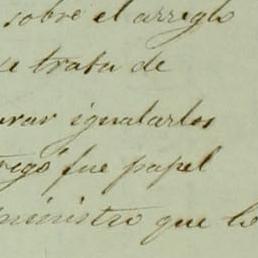 sobre el arreglo
se trata de
igualarlos
fue papel
ministro que lo